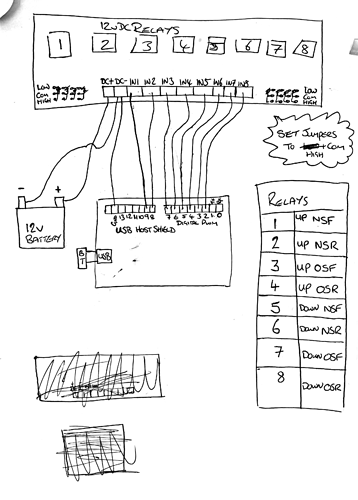 12v DC RELAYS
1 2 3 4 5 6 7 8
LOW
COM
HIGH
DC+ DC- IN1 IN2 IN3 IN4 IN5 IN6 IN7 IN8
LOW
COM
HIGH
SET JUMPERS
TO COM
HIGH
- +
12v
BATTERY
13 12 11 10 9 8
7 6 5 4 3 2 1 0
USB HOST SHIELD
DIGITAL PWM
BT
USB
RELAYS
1 UP NSF
2 UP NSR
3 UP OSF
4 UP OSR
5 DOWN NSF
6 DOWN NSR
7 DOWN OSF
8 DOWN OSR